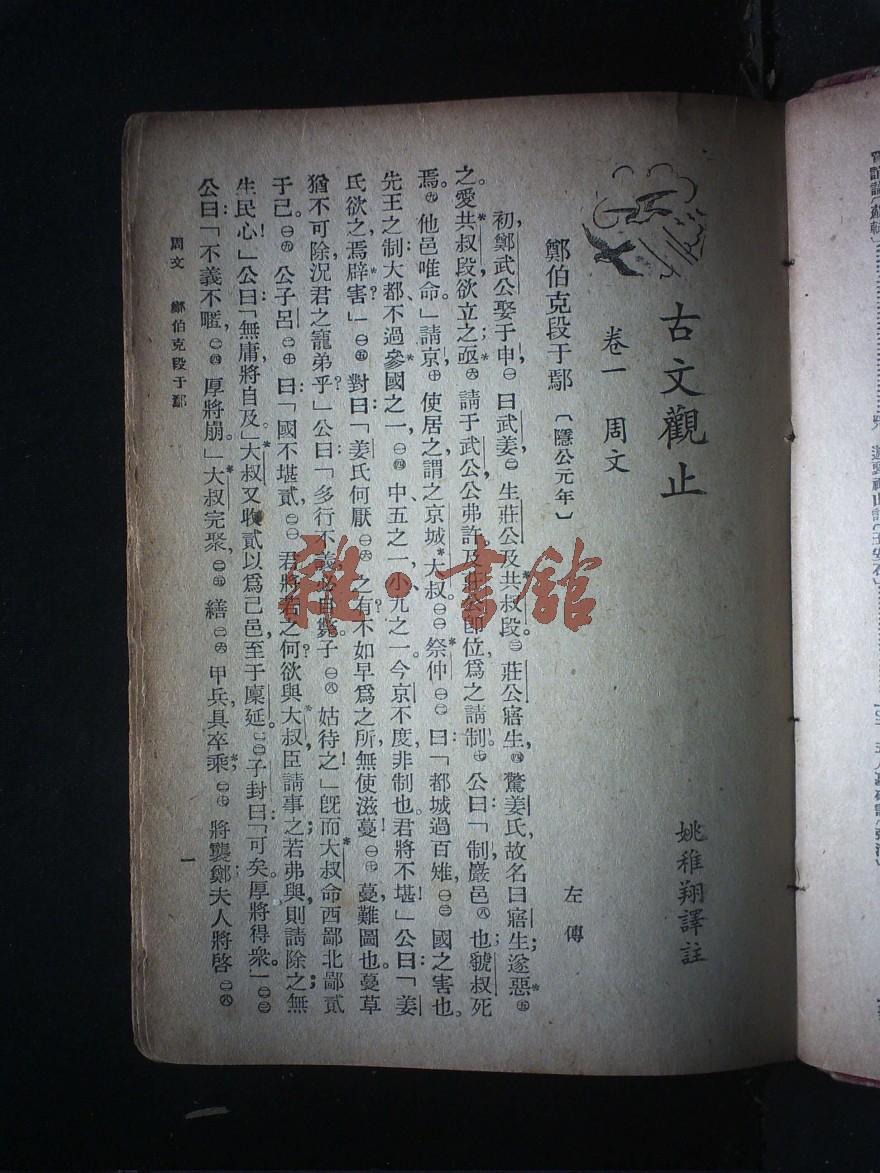 古文觀止
姚稚翔譯註
卷一 周文
鄭伯克段于鄢〔隱公元年〕
左傳
初，鄭武公娶于申，㊀曰武姜，㊁生莊公及共*叔段。㊂莊公寤生，㊃驚姜氏，故名曰寤生；遂惡*㊄
之。愛共*叔段，欲立之；亟*㊅請于武公，公弗許。及莊公即位，爲之請制。㊆公曰：「制，巖邑㊇也，虢叔死
焉。㊈他邑唯命」請京，㊉使居之，謂之京城*大叔。㊀㊀祭*仲㊀㊁曰：「都城過百雉，㊀㊂國之害也。
先王之制：大都不過參*國之一，㊀㊃中、五之一，小、九之一。今京不度，非制也。君將不堪！」公曰：「姜
氏欲之，焉辟*害？」㊀㊄對曰：「姜氏何厭㊀㊅之有？不如早爲之所，無使滋蔓！㊀㊆蔓難圖也。蔓草
猶不可除，況君之寵弟乎？」公曰：「多行不義必自斃。子㊀㊇姑待之！」旣而大*叔命西鄙北鄙貳
于己。㊀㊈公子呂㊀㊉曰：「國不堪貳，㊁㊀君將若之何？欲與大*叔，臣請事之；若弗與，則請除之，無
生民心！」公曰：「無庸，將自及。」大*叔又收貳以爲己邑，至于廩延。㊁㊁子封曰：「可矣。厚將得衆。」㊁㊂
公曰：「不義不暱，㊁㊃厚將崩。」大*叔完聚，㊁㊄繕㊁㊅甲兵，具卒乘*，㊁㊆將襲鄭；夫人將啓㊁㊇
周文 鄭伯克段于鄢
一